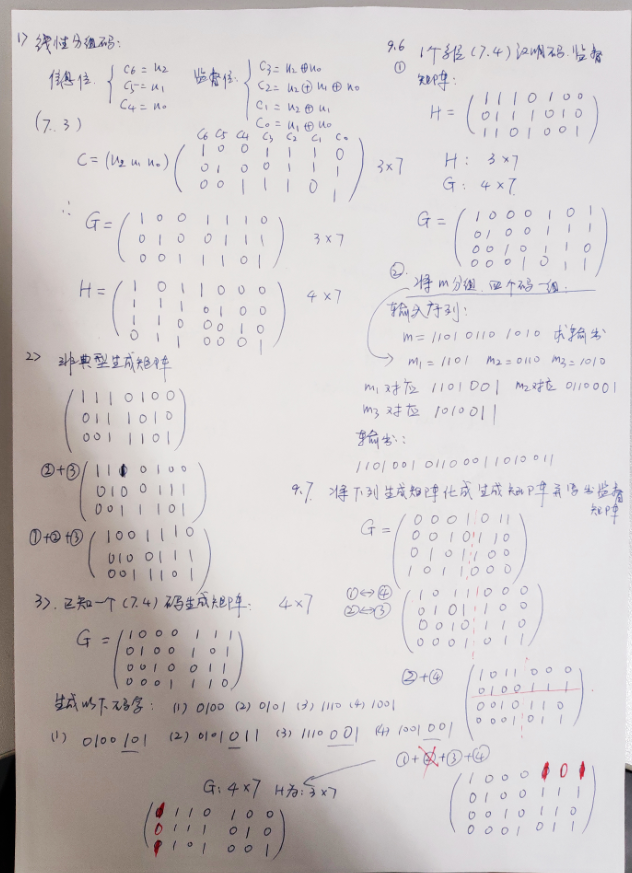 1) 线性分组码:
信息位 { C6 = u2
C5 = u1
C4 = u0
监督位 { C3 = u2 ⊕ u0
C2 = u2 ⊕ u1 ⊕ u0
C1 = u2 ⊕ u1
C0 = u1 ⊕ u0
(7.3)
C6 C5 C4 C3 C2 C1 C0
C = (u2 u1 u0) ( 1 0 0 1 1 1 0
0 1 0 0 1 1 1
0 0 1 1 1 0 1 ) 3×7
∴
G = ( 1 0 0 1 1 1 0
0 1 0 0 1 1 1
0 0 1 1 1 0 1 ) 3×7
H = ( 1 0 1 1 0 0 0
1 1 1 0 1 0 0
1 1 0 0 0 1 0
0 1 1 0 0 0 1 ) 4×7
2> 非典型生成矩阵
( 1 1 1 0 1 0 0
0 1 1 1 0 1 0
0 0 1 1 1 0 1 )
②+③ ( 1 1 1 0 1 0 0
0 1 0 0 1 1 1
0 0 1 1 1 0 1 )
①+②+③ ( 1 0 0 1 1 1 0
0 1 0 0 1 1 1
0 0 1 1 1 0 1 )
3>. 已知一个(7.4)码生成矩阵: 4×7
G = ( 1 0 0 0 1 1 1
0 1 0 0 1 0 1
0 0 1 0 0 1 1
0 0 0 1 1 1 0 )
生成以下码字: (1) 0100 (2) 0101 (3) 1110 (4) 1001
(1) 0100101 (2) 0101011 (3) 1110001 (4) 1001001
G: 4×7 H为: 3×7
( 1 1 1 0 1 0 0
0 1 1 1 0 1 0
1 1 0 1 0 0 1 )
9.6 1个系位(7.4)汉明码.监督
① 矩阵:
H = ( 1 1 1 0 1 0 0
0 1 1 1 0 1 0
1 1 0 1 0 0 1 )
H: 3×7
G: 4×7
G = ( 1 0 0 0 1 0 1
0 1 0 0 1 1 1
0 0 1 0 1 1 0
0 0 0 1 0 1 1 )
② 将m分组.四个码一组.
输入序列:
m = 1101 0110 1010 求输出
m1 = 1101 m2 = 0110 m3 = 1010
m1对应 1101001 m2对应 0110001
m3对应 1010011
输出:
1101001 0110001 1010011
9.7 将下列生成矩阵化成生成矩阵并写出监督
矩阵
G = ( 0 0 0 1 0 1 1
0 0 1 0 1 1 0
0 1 0 1 1 0 0
1 0 1 1 0 0 0 )
①↔④
②↔③ ( 1 0 1 1 0 0 0
0 1 0 1 1 0 0
0 0 1 0 1 1 0
0 0 0 1 0 1 1 )
②+④ ( 1 0 1 1 0 0 0
0 1 0 0 1 1 1
0 0 1 0 1 1 0
0 0 0 1 0 1 1 )
①+②+③+④
( 1 0 0 0 1 0 1
0 1 0 0 1 1 1
0 0 1 0 1 1 0
0 0 0 1 0 1 1 )